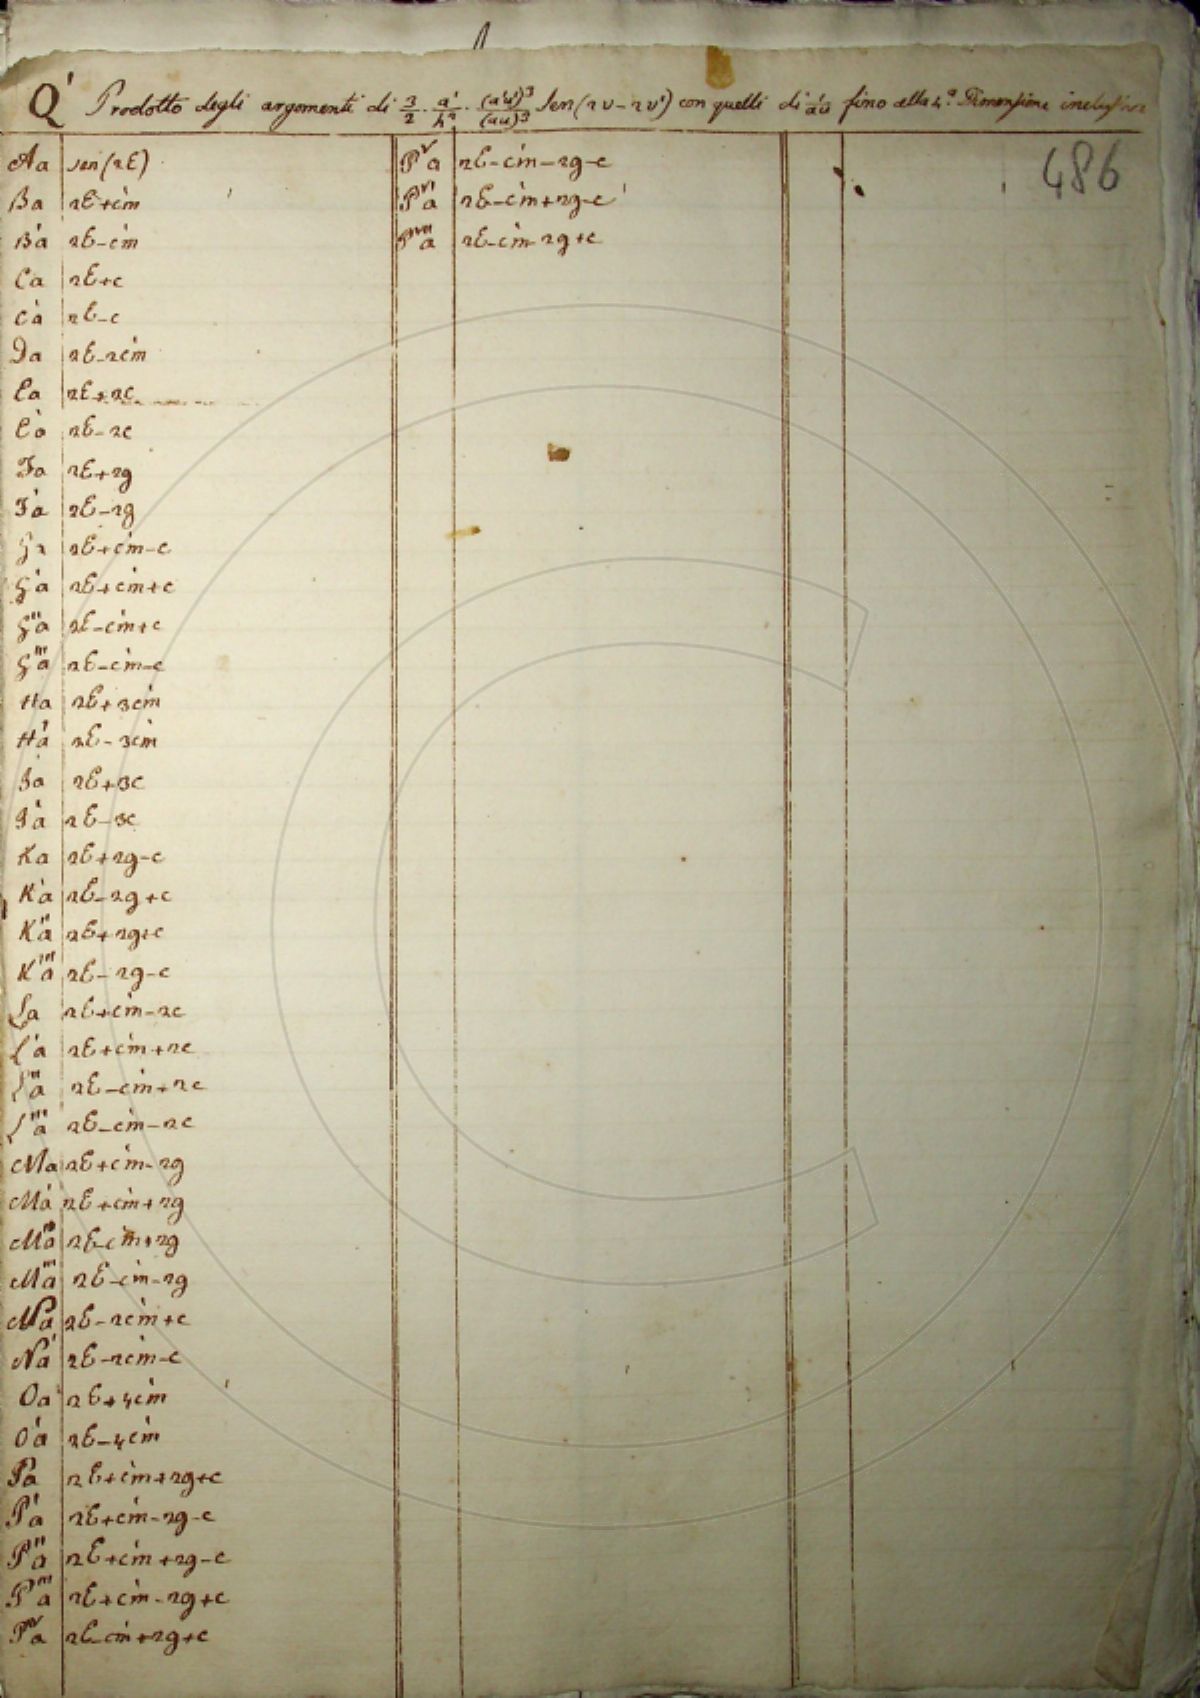 Q' Prodotto degli argomenti di 3/2 . a'/h² . (a'u')³/(au)³ Sen(2v-2v') con quelli di a'a fino alla 4.ª Dimensione inclusiva
486
Aa sen(2E)
Ba 2E+c'm
B'a 2E-c'm
Ca 2E+c
C'a 2E-c
Da 2E-2c'm
Ea 2E+2c
E'a 2E-2c
Fa 2E+2g
F'a 2E-2g
Ga 2E+c'm-c
G'a 2E+c'm+c
G''a 2E-c'm+c
G'''a 2E-c'm-c
Ha 2E+3c'm
H'a 2E-3c'm
Ja 2E+3c
J'a 2E-3c
Ka 2E+2g-c
K'a 2E-2g+c
K''a 2E+2g+c
K'''a 2E-2g-c
La 2E+c'm-2c
L'a 2E+c'm+2c
L''a 2E-c'm+2c
L'''a 2E-c'm-2c
Ma 2E+c'm-2g
M'a 2E+c'm+2g
M''a 2E-c'm+2g
M'''a 2E-c'm-2g
Na 2E-2c'm+c
N'a 2E-2c'm-c
Oa 2E+4c'm
O'a 2E-4c'm
Pa 2E+c'm+2g+c
P'a 2E+c'm-2g-c
P''a 2E+c'm+2g-c
P'''a 2E+c'm-2g+c
P^IV a 2E-c'm+2g+c
P^V a 2E-c'm-2g-c
P^VI a 2E-c'm+2g-c
P^VII a 2E-c'm-2g+c